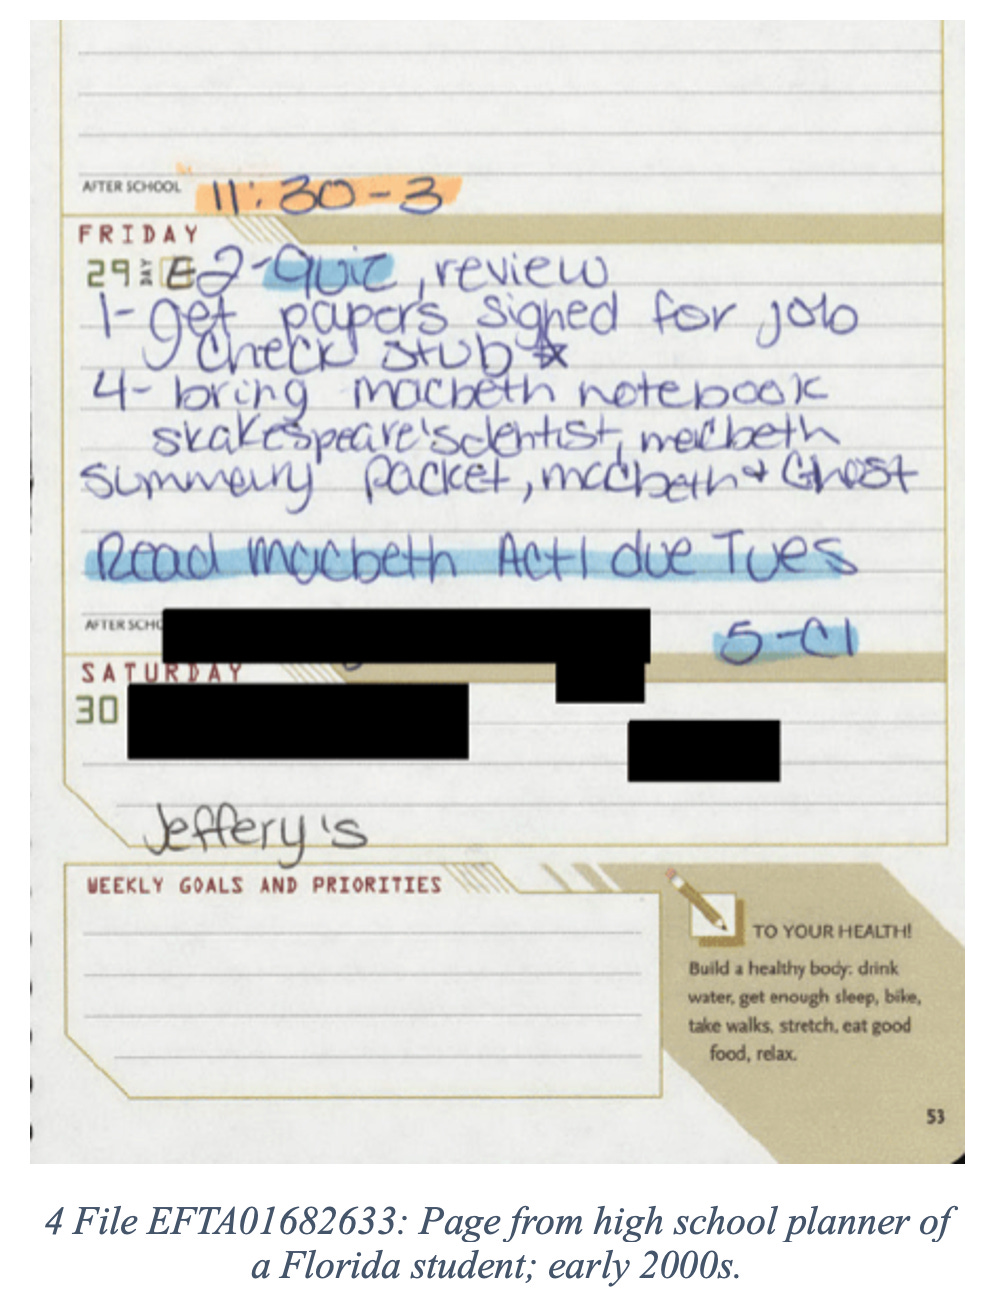 AFTER SCHOOL 11:30-3
FRIDAY
29 DAY E 2-Quiz, review
1-get papers signed for job
check stub
4- bring macbeth notebook
skakespeare's identist, macbeth
summary packet, macbeth + Ghost
Read Macbeth Act 1 due Tues
AFTER SCHO 5-Cl
SATURDAY
30
Jeffery's
WEEKLY GOALS AND PRIORITIES
TO YOUR HEALTH!
Build a healthy body: drink
water, get enough sleep, bike,
take walks, stretch, eat good
food, relax.
53
4 File EFTA01682633: Page from high school planner of
a Florida student; early 2000s.